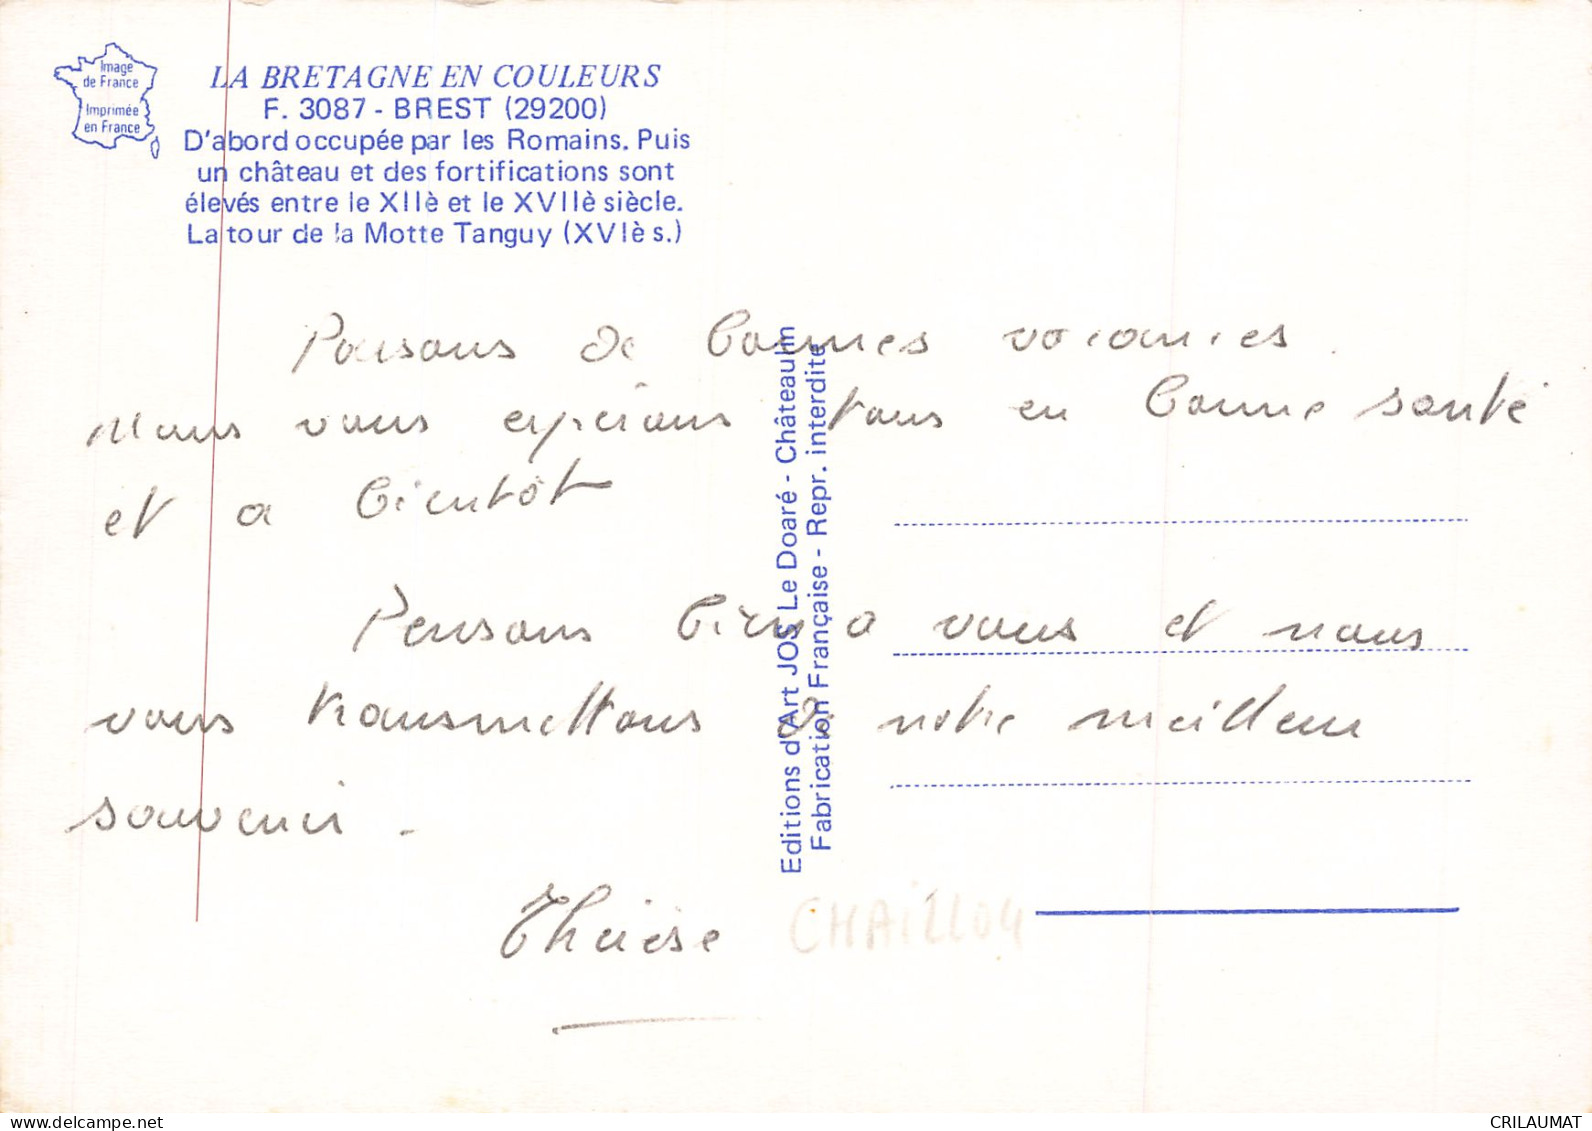 Image
de France
Imprimée
en France
LA BRETAGNE EN COULEURS
F. 3087 - BREST (29200)
D'abord occupée par les Romains. Puis
un château et des fortifications sont
élevés entre le XIIè et le XVIIè siècle.
La tour de la Motte Tanguy (XVIè s.)
Passons de bonnes vacances.
Nous vous espérons tous en bonne santé
et a bientôt
Pensons bien a vous et nous
vous transmettons de notre meilleur
souvenir.
Thérèse CHAILLOU
Editions d'Art JOS Le Doaré - Châteaulin
Fabrication Française - Repr. interdite
CRILAUMAT